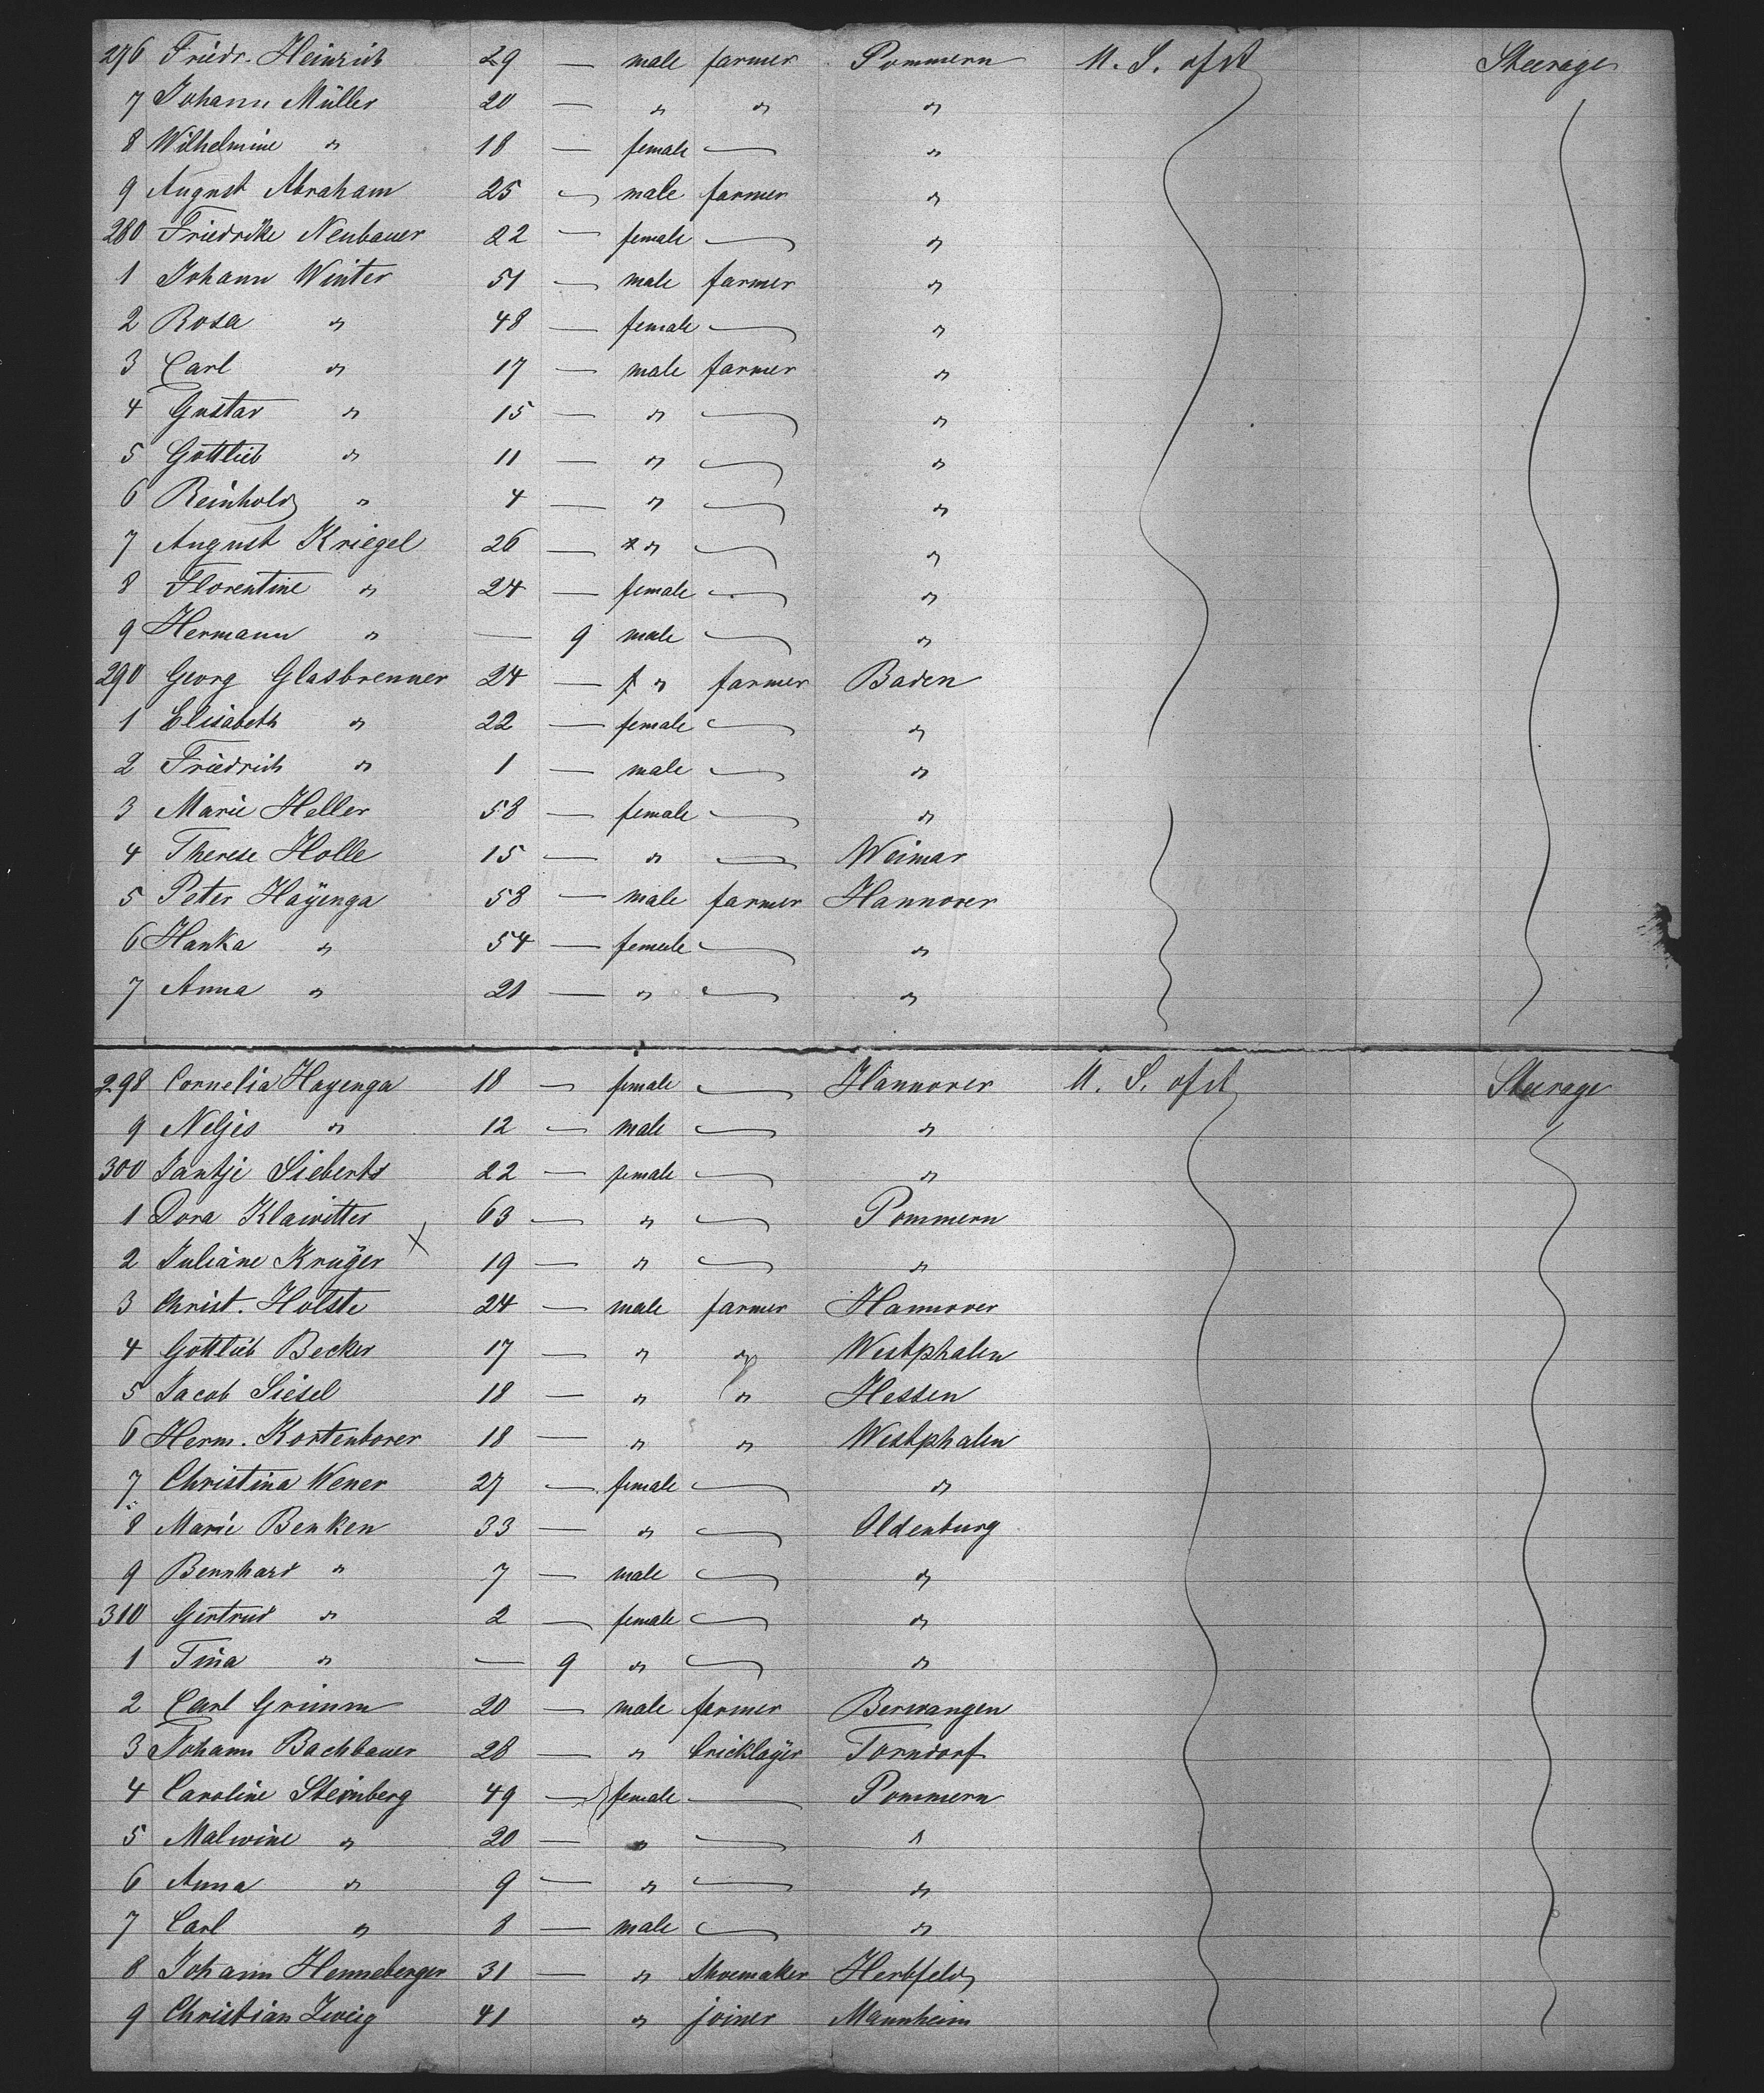 276 Friedr. Heinrich 29 — male farmer Pommern U. S. of A Steerage
7 Johann Müller 20 — " " "
8 Wilhelmine " 18 — female — "
9 August Abraham 25 — male farmer "
280 Friedrike Neubauer 22 — female — "
1 Johann Winter 51 — male farmer "
2 Rosa " 48 — female — "
3 Carl " 17 — male farmer "
4 Gustav " 15 — " — "
5 Gottlieb " 11 — " — "
6 Reinhold " 4 — " — "
7 August Kriegel 26 — " — "
8 Florentine " 24 — female — "
9 Hermann " — 9 male — "
290 Georg Glasbrenner 24 — " farmer Baden
1 Elisabeth " 22 — female — "
2 Friedrich " 1 — male — "
3 Marie Heller 58 — female — "
4 Therese Holle 15 — " — Weimar
5 Peter Haÿenga 58 — male farmer Hannover
6 Hanka " 54 — female — "
7 Anna " 21 — " — "
298 Cornelia Hayenga 18 — female — Hannover U. S. of A Steerage
9 Neljes " 12 — male — "
300 Jantje Sieberts 22 — female — "
1 Dora Klawitter 63 — " — Pommern
2 Juliane Krüger X 19 — " — "
3 Christ. Holste 24 — male farmer Hannover
4 Gottlieb Becker 17 — " " Westphalen
5 Jacob Siesel 18 — " " Hessen
6 Herm. Kortenborer 18 — " " Westphalen
7 Christina Wener 27 — female — "
8 Marie Benken 33 — " — Oldenburg
9 Bernhard " 7 — male — "
310 Gertrud " 2 — female — "
1 Tina " — 9 " — "
2 Carl Grimm 20 — male farmer Berwangen
3 Johann Bachbauer 28 — " bricklayer Torndorf
4 Caroline Steinberg 49 — female — Pommern
5 Malwine " 20 — " — "
6 Anna " 9 — " — "
7 Carl " 8 — male — "
8 Johann Henneberger 31 — " Shoemaker Herbfeld
9 Christian Zweig 41 " joiner Mannheim